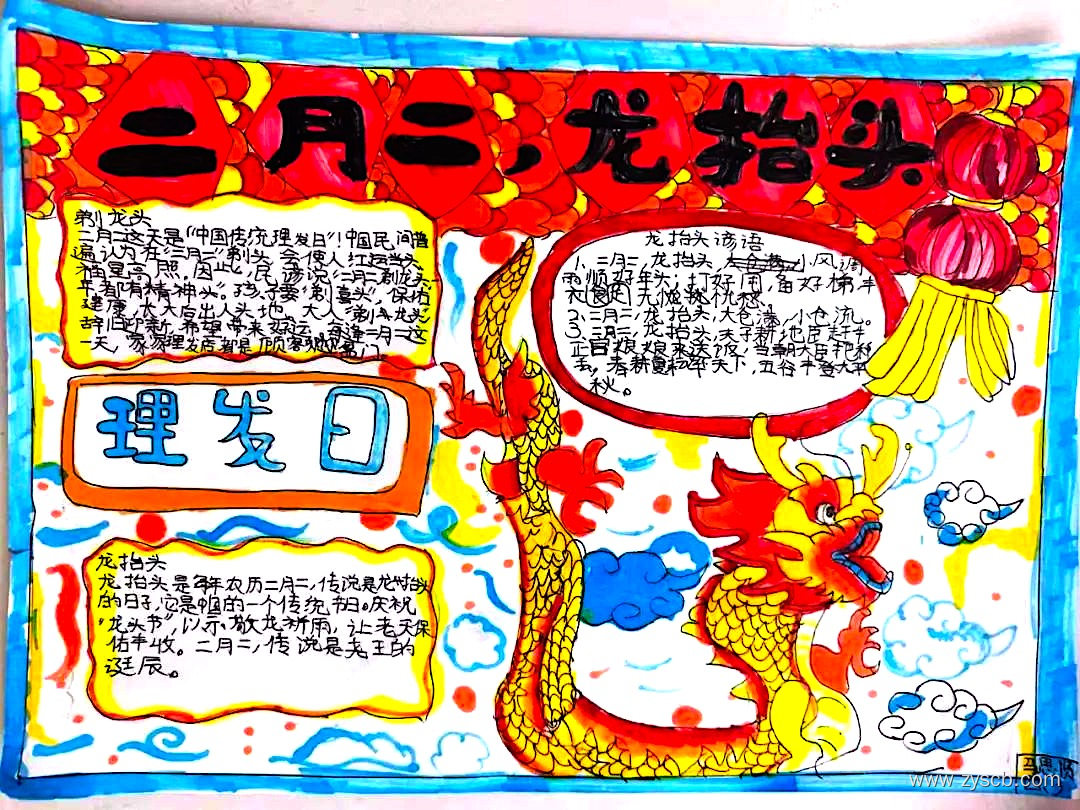 二月二,龙抬头
剃龙头
二月二这天是"中国传统理发日"!中国民间普
遍认为在"二月二"剃头,会使人红运当头
福星高照,因此,民谚说"二月二剃龙头
年都有精神头"。孩子要"剃喜头",保佑
健康,长大后出人头地。大人"剃龙头"
辞旧迎新,希望带来好运。每逢二月二这
一天,家家理发店都是顾客
理发日
龙抬头
龙抬头是每年农历二月二,传说是龙抬头
的日子,它是中国的一个传统节日。庆祝
"龙头节",以示敬龙祈雨,让老天保
佑丰收。二月二,传说是尧王的
诞辰。
龙抬头谚语
1、二月二,龙抬头,小风调
雨顺好年头,
衣食足,无忧
2、二月二,龙抬头,大仓满,小仓流。
3、二月二,龙抬头,天子耕地臣赶牛
正宫娘娘来送饭,当朝大臣把种
去,春耕夏耘率天下,五谷丰登太平
秋。
www.zyscb.com